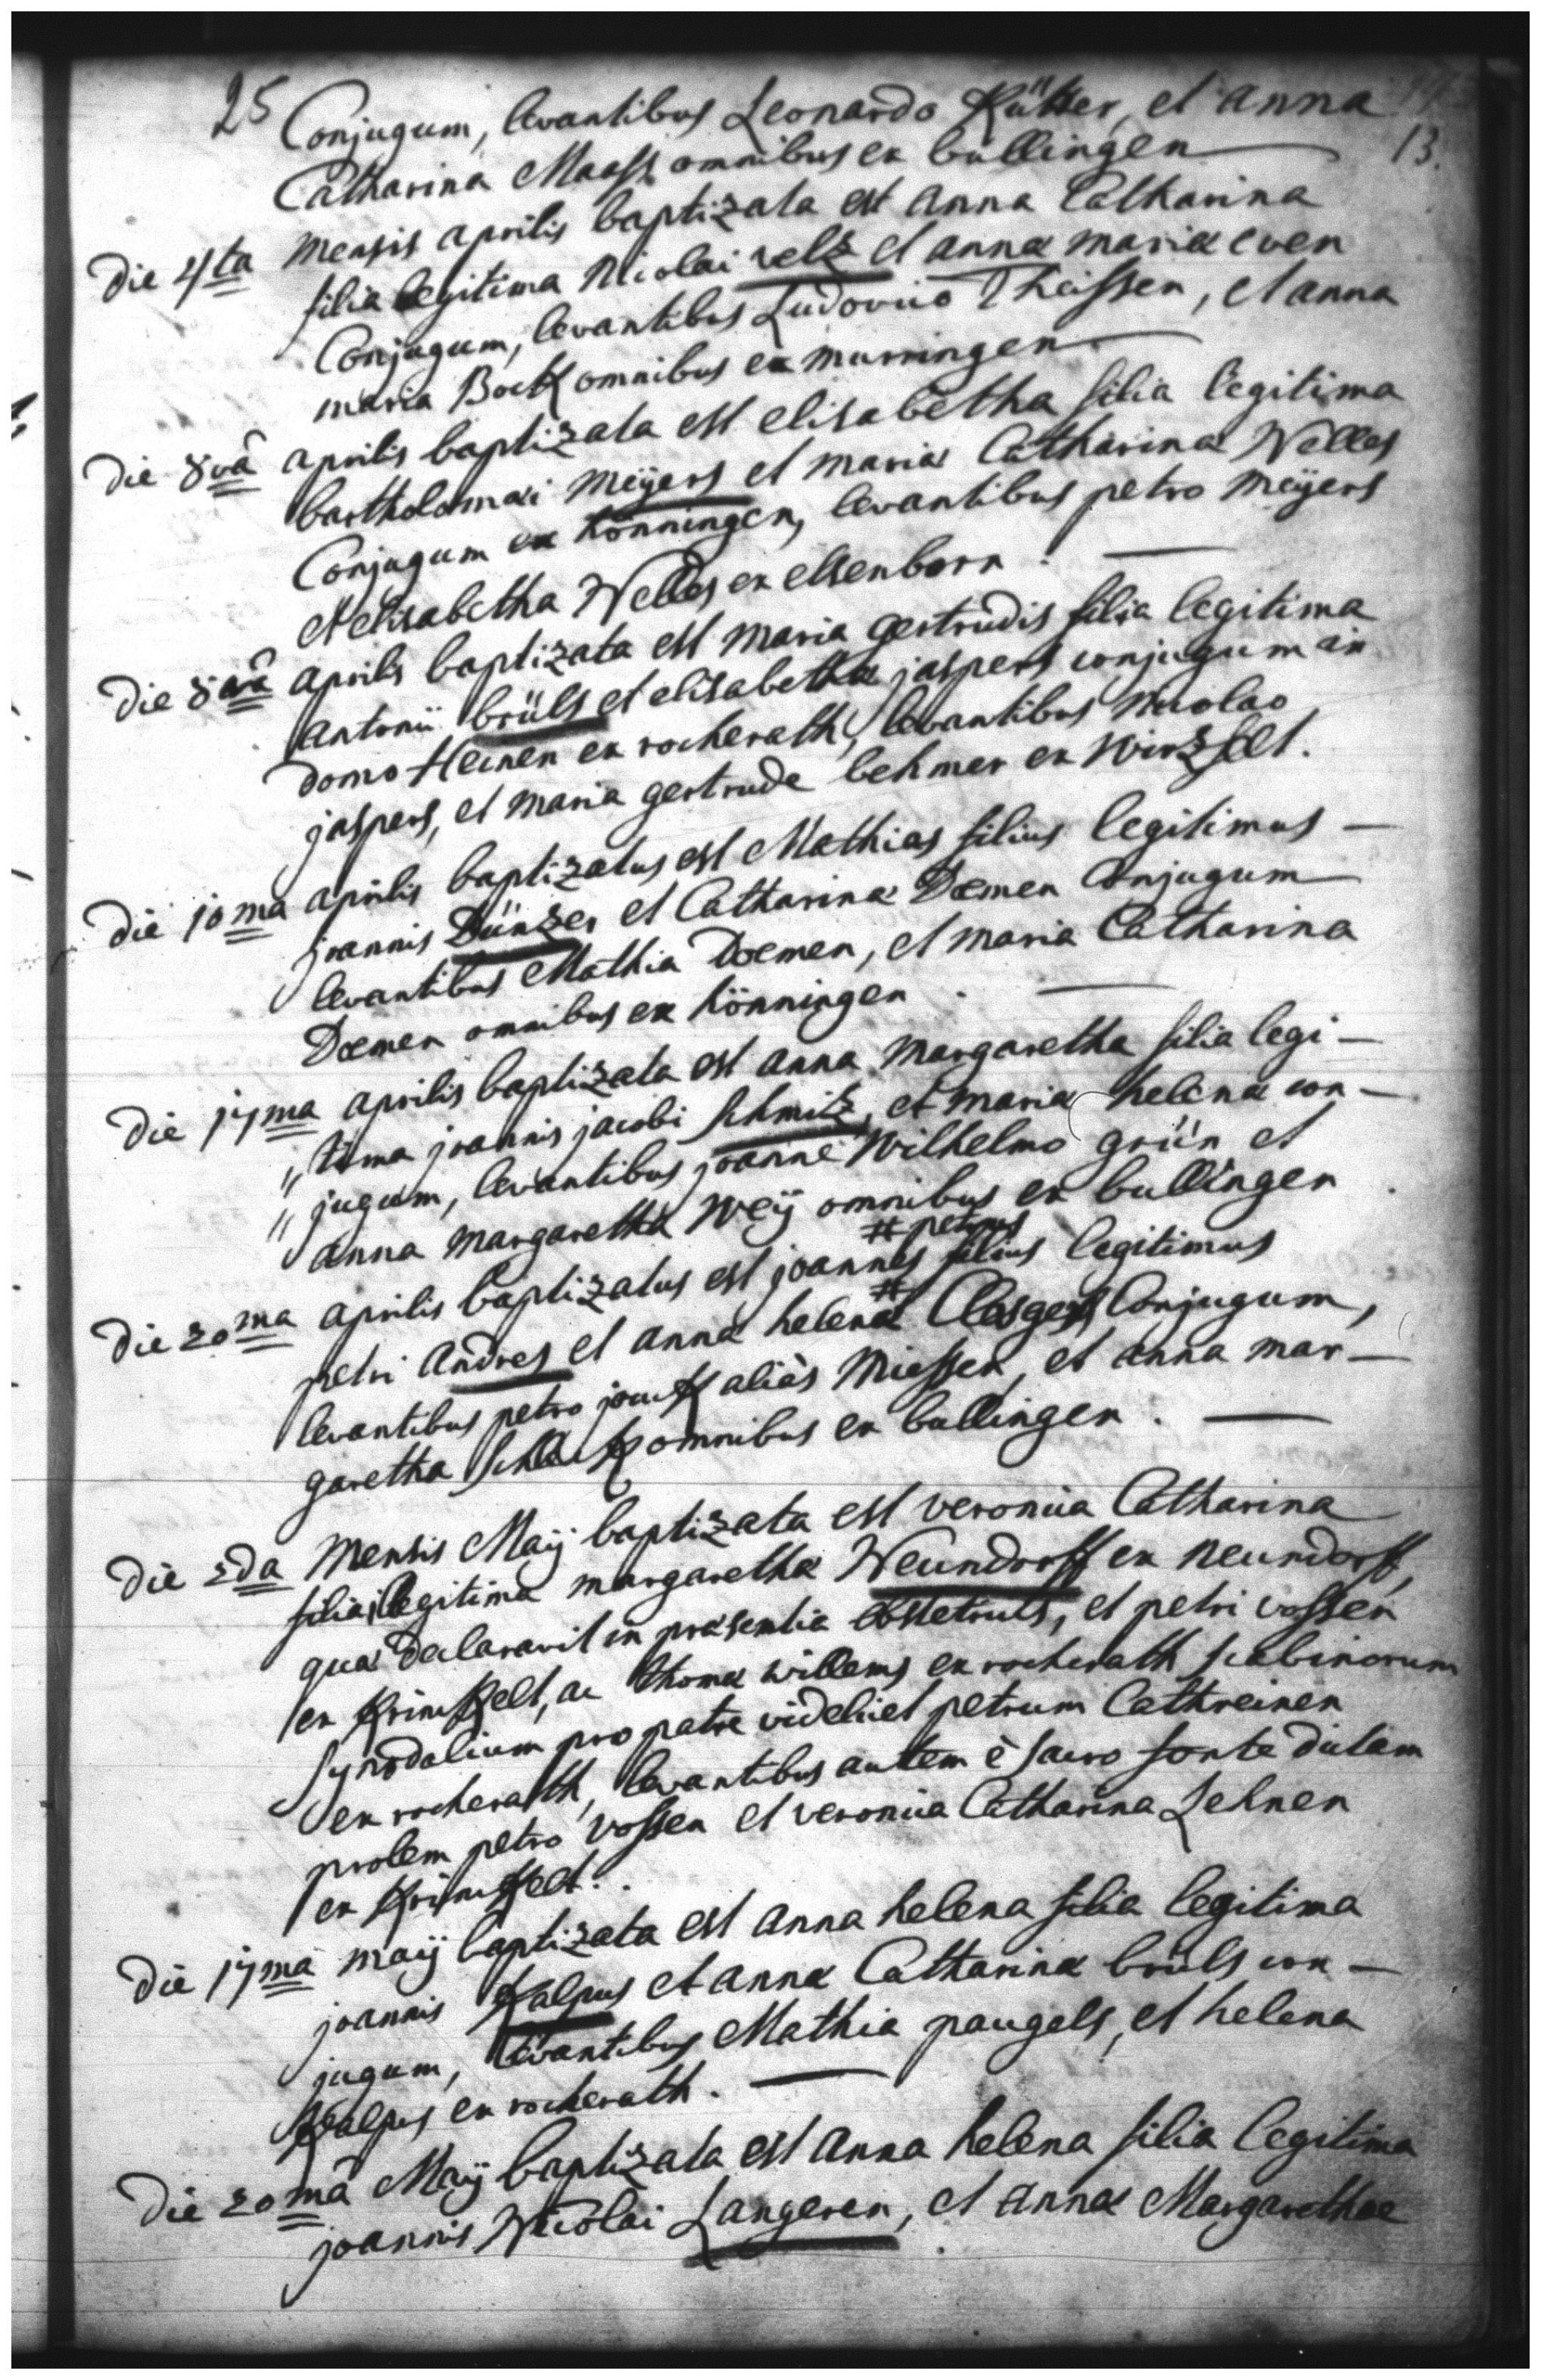 25
13.
Conjugum, levantibus Leonardo Rütter, et anna
Catharina Maass omnibus ex bullingen
die 4ta mensis aprilis baptizata est anna Catharina
filia legitima Nicolai velz et annæ mariæ even
Conjugum, levantibus Ludovico Theissen, et anna
maria Bock omnibus ex murringen
die 8vâ aprilis baptizata est elisabetha filia legitima
bartholomæi meÿers et mariæ Catharinæ Welles
Conjugum ex hönningen, levantibus petro meÿers
et elisabetha Welles ex elsenborn.
die 8vâ aprilis baptizata est maria gertrudis filia legitima
antonii brüls et elisabethæ jaspers conjugum in
domo Heinen ex rocherath, levantibus nicolao
jaspers, et maria gertrude behmer ex wirzfelt.
die 10mâ aprilis baptizatus est Mathias filius legitimus
joannis Dünzer et Catharinæ Dœmen Conjugum
levantibus Mathia Dœmen, et maria Catharina
Dœmen omnibus ex hönningen.
die 17ma aprilis baptizata est anna margaretha filia legi-
„tima joannis jacobi schmitz, et mariæ helenæ con-
„jugum, levantibus joanne wilhelmo grün et
anna margaretha weÿ omnibus ex bullingen
# petrus
die 20ma aprilis baptizatus est joannes # filius legitimus
petri andres et annæ helenæ Closges Conjugum,
levantibus petro jouck aliàs miessen, et anna mar-
garetha omnibus ex bullingen.
die 2da mensis Maÿ baptizata est veronica Catharina
filia illegitima margarethæ Neundorff ex neundorff,
quæ declaravit in præsentia obstetricis, et petri vossen
ex krinckelt, ac thomæ willems ex rocherath scabinorum
synodalium pro patre videlicet petrum Cathreinen
ex rocherath, levantibus autem è sacro fonte dictam
prolem petro vossen et veronica Catharina Lehnen
ex krinckelt.
die 17mâ maÿ baptizata est anna helena filia legitima
joannis kalpus et annæ Catharinæ brüls con-
jugum, levantibus Mathia paugels, et helena
kalpus ex rocherath.
die 20mâ Maÿ baptizata est anna helena filia legitima
joannis Nicolai Langeren, et annæ Margarethae